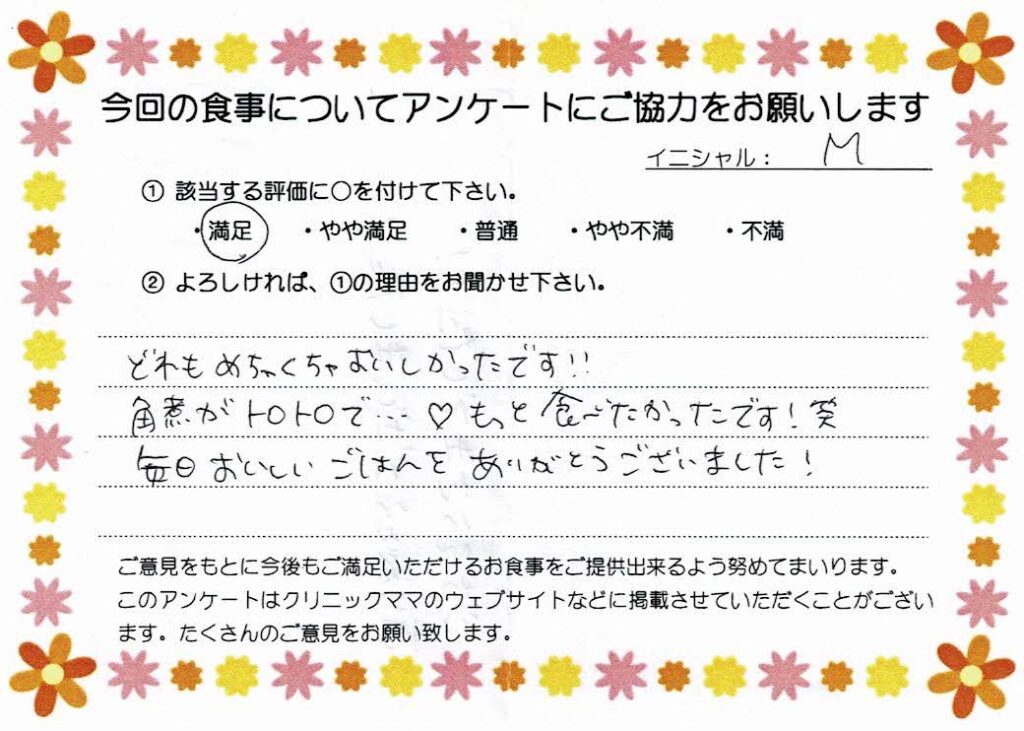 今回の食事についてアンケートにご協力をお願いします
イニシャル： M
① 該当する評価に○を付けて下さい。
・満足 ・やや満足 ・普通 ・やや不満 ・不満
② よろしければ、①の理由をお聞かせ下さい。
どれもめちゃくちゃおいしかったです!!
角煮がトロトロで…♡もっと食べたかったです!笑
毎日おいしいごはんをありがとうございました!
ご意見をもとに今後もご満足いただけるお食事をご提供出来るよう努めてまいります。
このアンケートはクリニックママのウェブサイトなどに掲載させていただくことがござい
ます。たくさんのご意見をお願い致します。